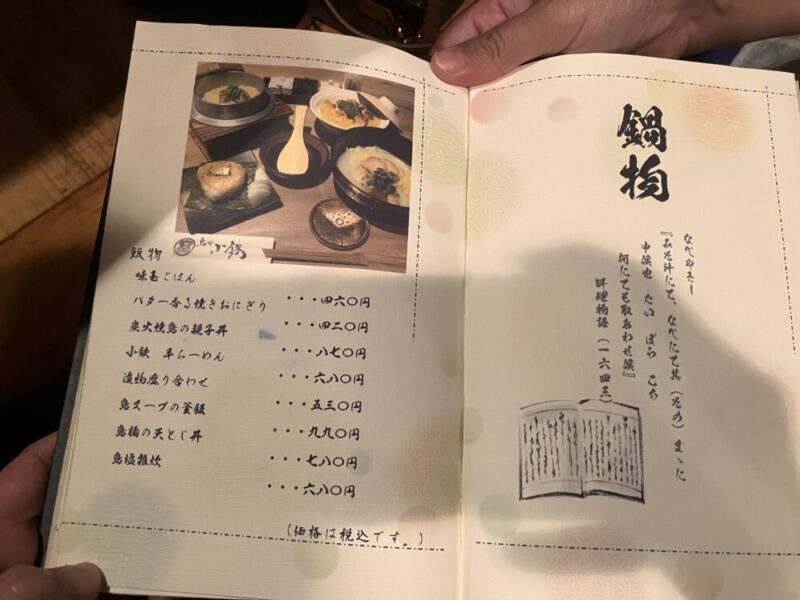 飯物
味玉ごはん ・・・四六〇円
バター香る焼きおにぎり ・・・四二〇円
炭火焼鳥の親子丼 ・・・八七〇円
小鉄 半らーめん ・・・六八〇円
漬物盛り合わせ ・・・五三〇円
鳥スープの釜飯 ・・・九九〇円
鳥胸の天とじ丼 ・・・七八〇円
鳥塩雑炊 ・・・六八〇円
(価格は税込です。)
鍋物
なべやきー
『みそ汁にて、なべにて其(その)まゝに
中候也 たい ぼら こち
何にても取あわせ候』
料理物語(一六四三)